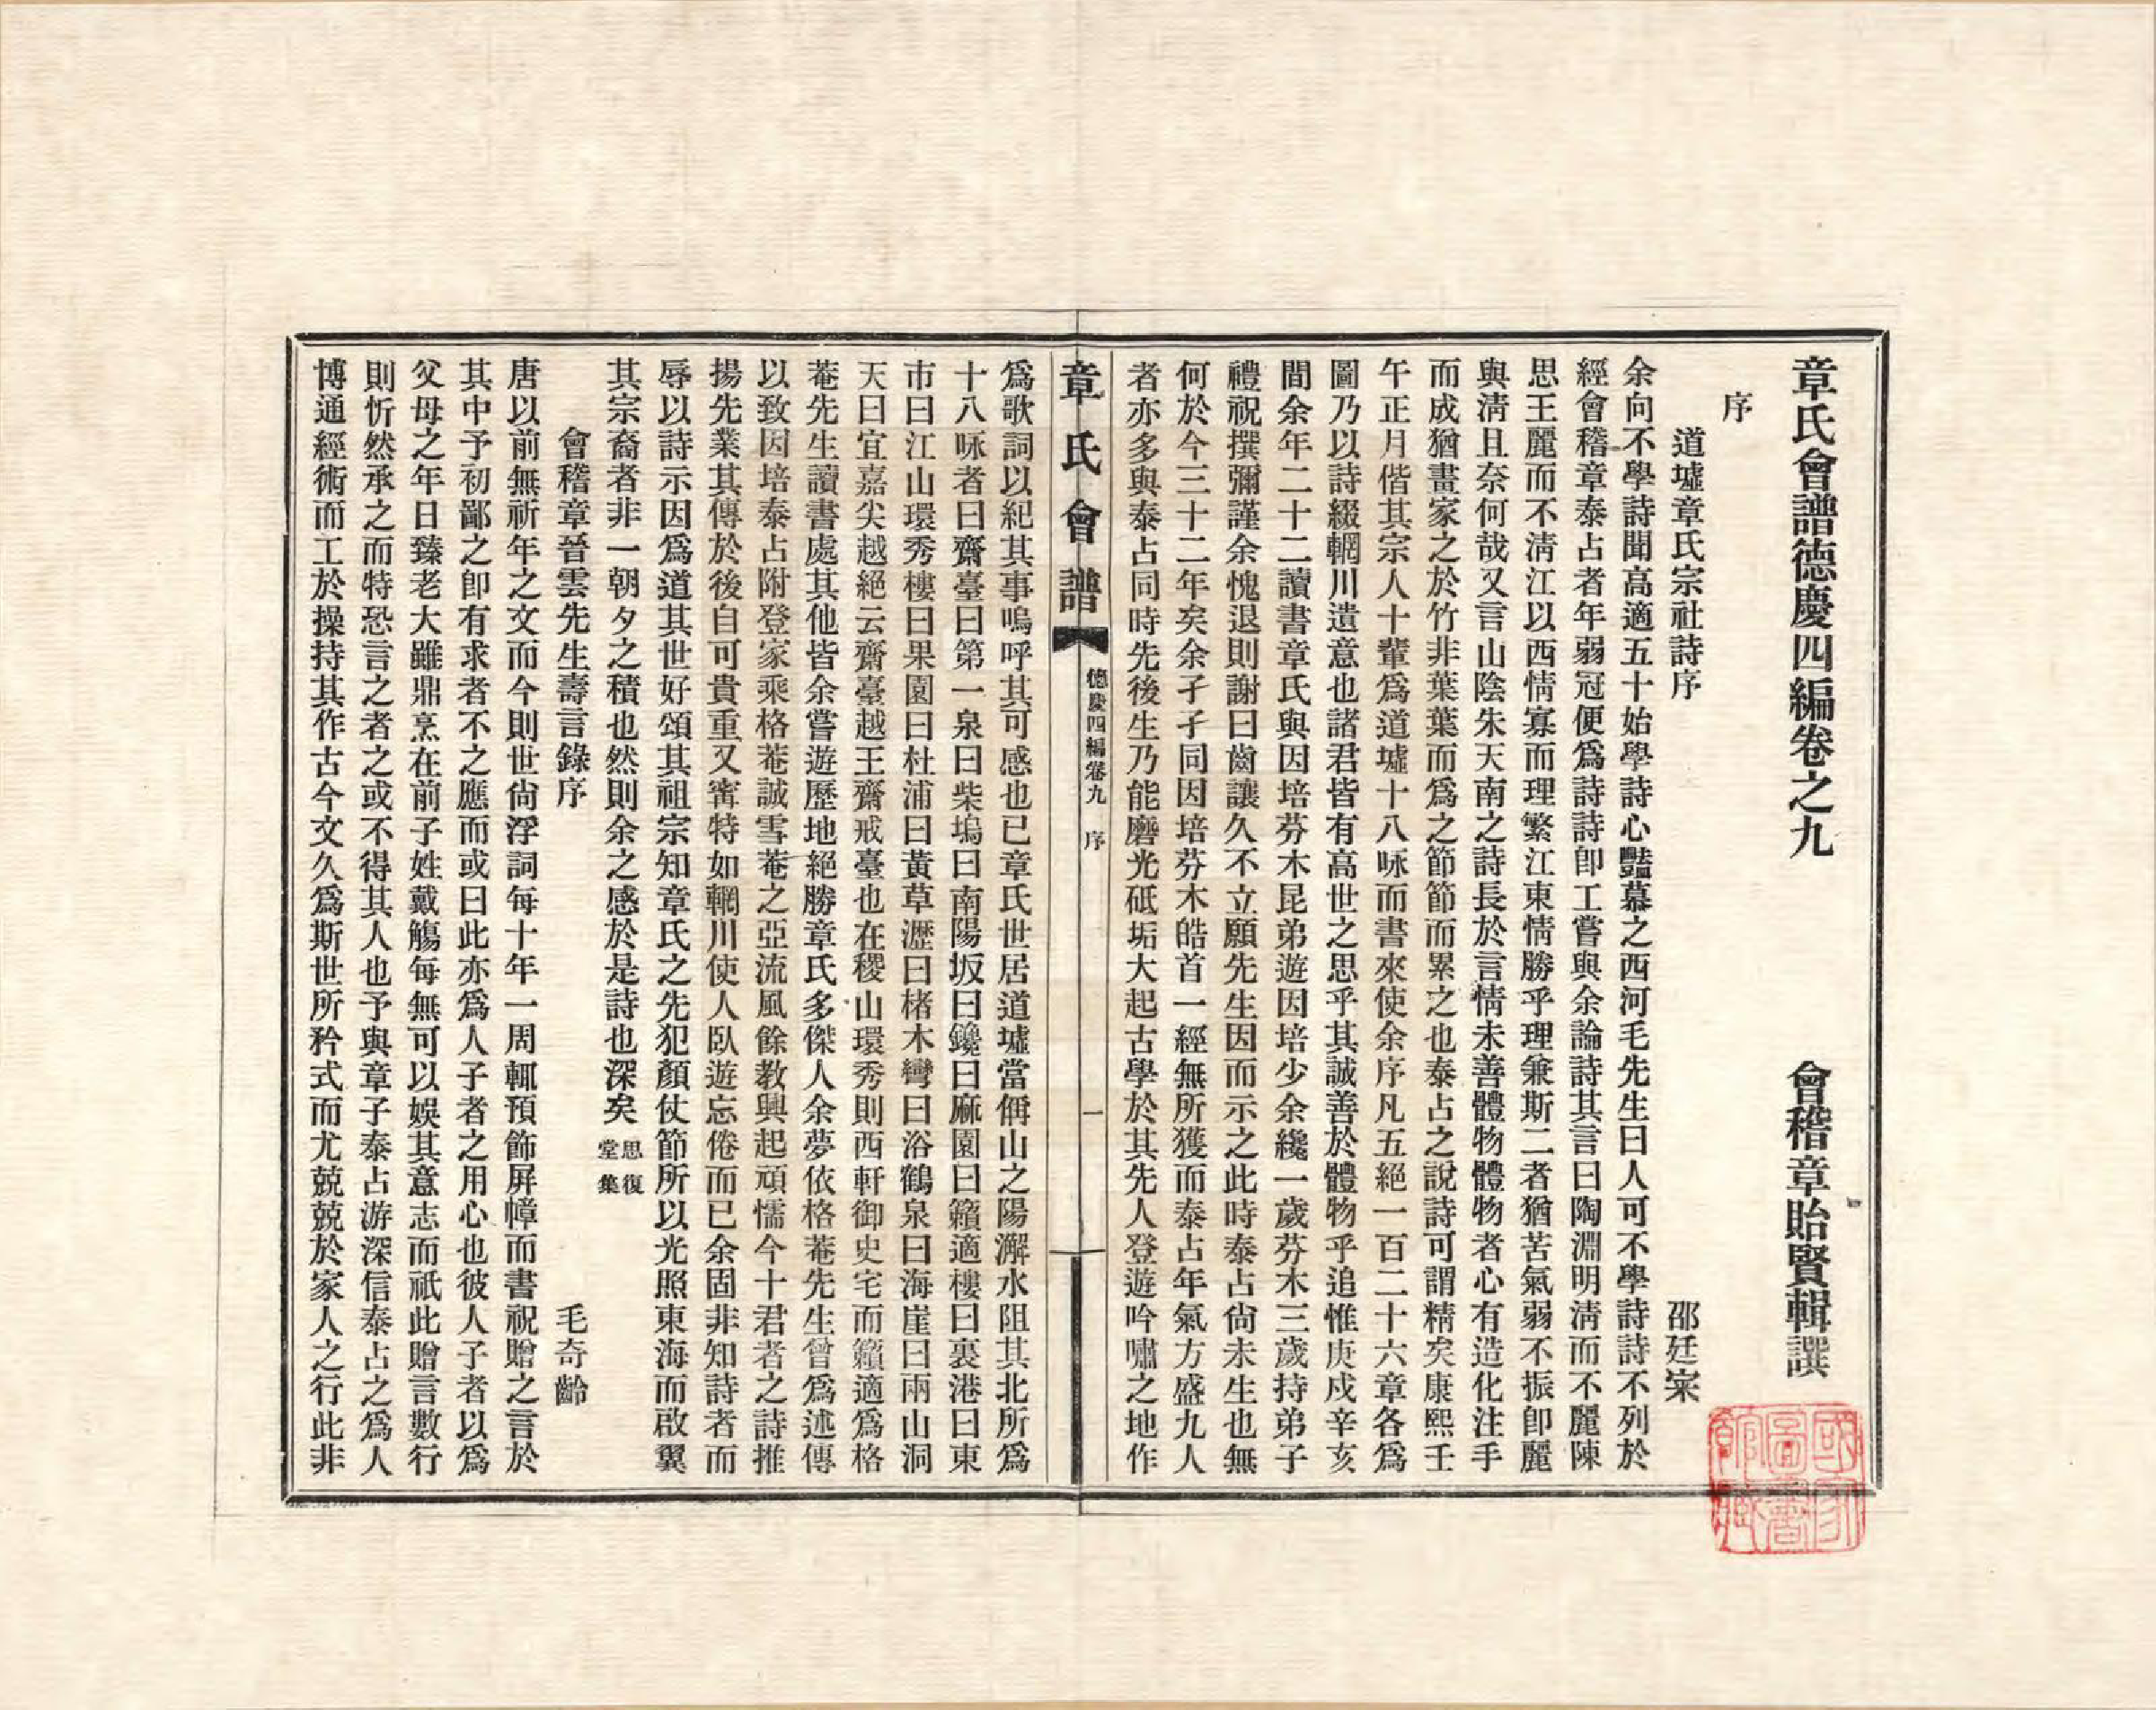 章氏會譜德慶四編卷之九
會稽章貽賢輯譔
序
道墟章氏宗社詩序
邵廷寀
余向不學詩聞高適五十始學詩心豔慕之西河毛先生曰人可不學詩詩不列於
經會稽章泰占者年弱冠便爲詩詩卽工嘗與余論詩其言曰陶淵明淸而不麗陳
思王麗而不淸江以西情寡而理繁江東情勝乎理兼斯二者猶苦氣弱不振卽麗
與淸且奈何哉又言山陰朱天南之詩長於言情未善體物體物者心有造化注手
而成猶畫家之於竹非葉葉而爲之節節而累之也泰占之說詩可謂精矣康熙壬
午正月偕其宗人十輩爲道墟十八咏而書來使余序凡五絕一百二十六章各爲
圖乃以詩綴輞川遺意也諸君皆有高世之思乎其誠善於體物乎追惟庚戌辛亥
間余年二十二讀書章氏與因培芬木昆弟遊因培少余纔一歲芬木三歲持弟子
禮祝撰彌謹余愧退則謝曰齒讓久不立願先生因而示之此時泰占尙未生也無
何於今三十二年矣余孑孑同因培芬木皓首一經無所獲而泰占年氣方盛九人
者亦多與泰占同時先後生乃能磨光砥垢大起古學於其先人登遊吟嘯之地作
章氏會譜
德慶四編卷九 序
一
爲歌詞以紀其事嗚呼其可感也已章氏世居道墟當偁山之陽澥水阻其北所爲
十八咏者曰齋臺曰第一泉曰柴塢曰南陽坂曰鑱曰麻園曰籟適樓曰裏港曰東
市曰江山環秀樓曰果園曰杜浦曰黃草瀝曰楮木彎曰浴鶴泉曰海崖曰兩山洞
天曰宜嘉尖越絕云齋臺越王齋戒臺也在稷山環秀則西軒御史宅而籟適爲格
菴先生讀書處其他皆余嘗遊歷地絕勝章氏多傑人余夢依格菴先生曾爲述傳
以致因培泰占附登家乘格菴誠雪菴之亞流風餘教興起頑懦今十君者之詩推
揚先業其傳於後自可貴重又甯特如輞川使人臥遊忘倦而已余固非知詩者而
辱以詩示因爲道其世好頌其祖宗知章氏之先犯顏仗節所以光照東海而啟翼
其宗裔者非一朝夕之積也然則余之感於是詩也深矣思復堂集
會稽章晉雲先生壽言錄序
毛奇齡
唐以前無祈年之文而今則世尙浮詞每十年一周輒預飾屛幛而書祝贈之言於
其中予初鄙之卽有求者不之應而或曰此亦爲人子者之用心也彼人子者以爲
父母之年日臻老大雖鼎烹在前子姓戴觴每無可以娛其意志而祇此贈言數行
則忻然承之而特恐言之者之或不得其人也予與章子泰占游深信泰占之爲人
博通經術而工於操持其作古今文久爲斯世所矜式而尤兢兢於家人之行此非